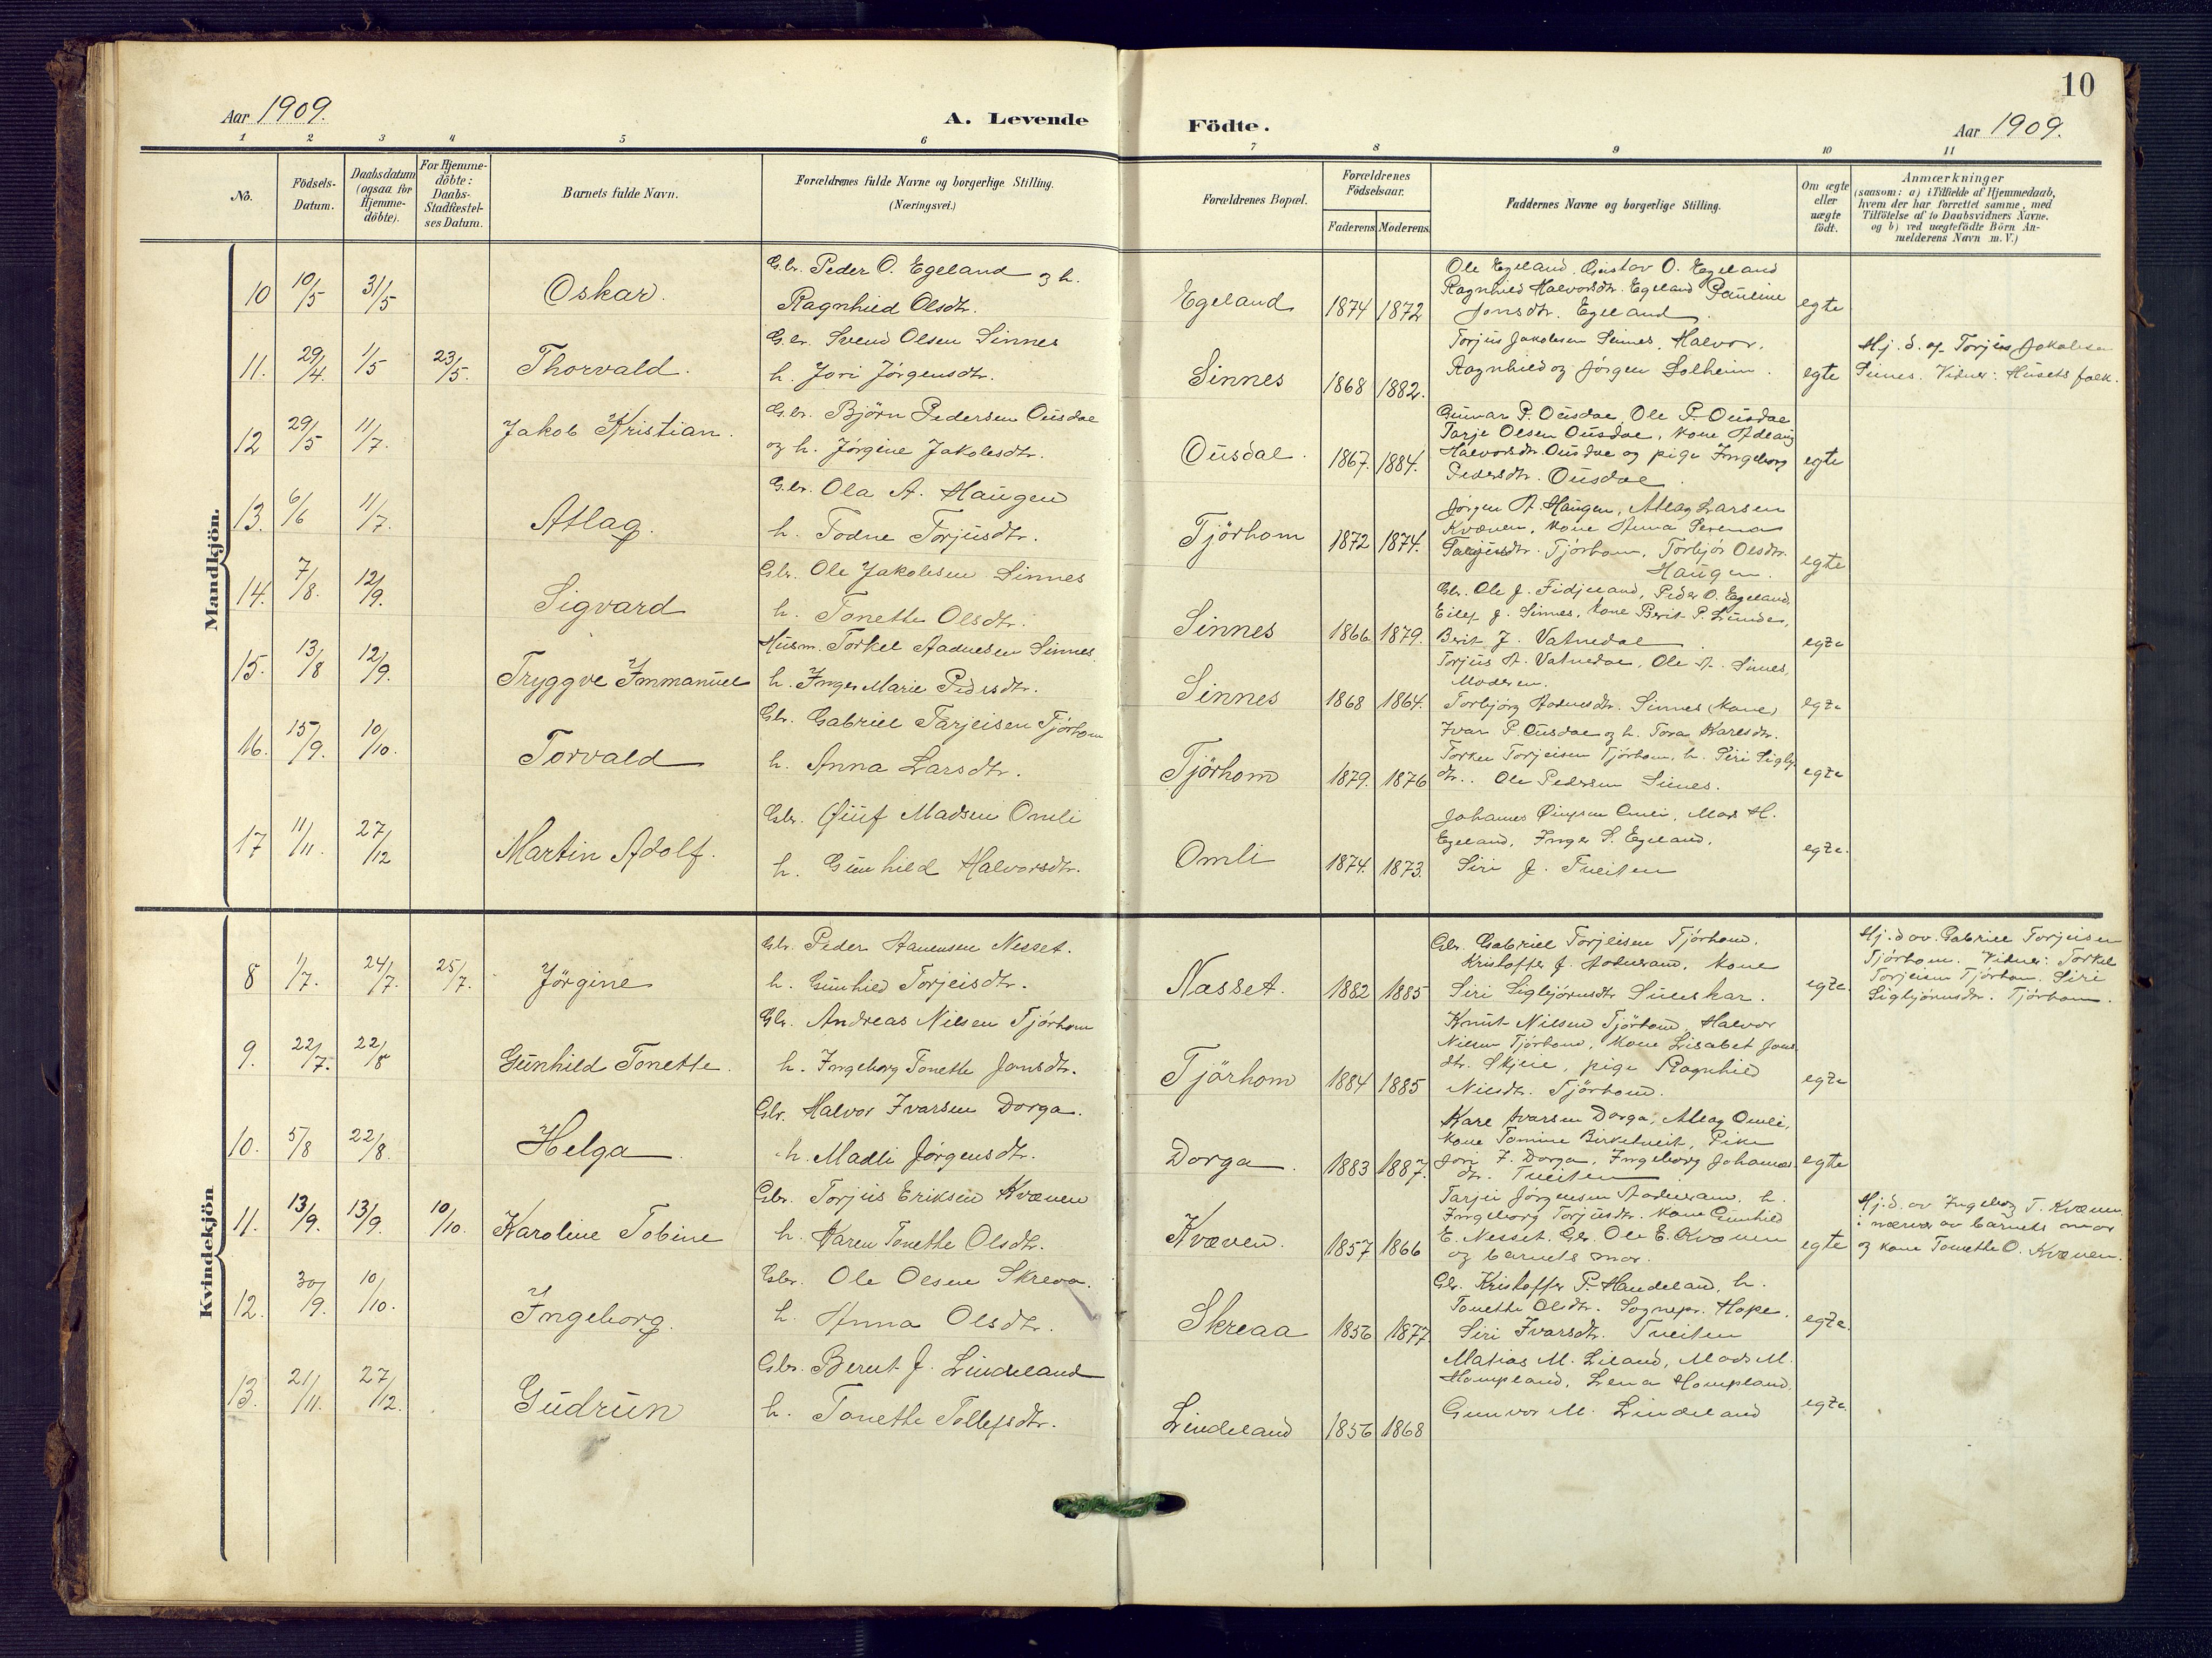 10
Aar 1909.
A. Levende Födte.
Aar 1909.
1 2 3 4 5 6 7 8 9 10 11
No.
Födsels-
Datum.
Daabsdatum
(ogsaa for
Hjemme-
döbte).
For Hjemme-
döbte:
Daabs-
Stadfæstel-
ses Datum.
Barnets fulde Navn.
Forældrenes fulde Navne og borgerlige Stilling.
(Næringsvei.)
Forældrenes Bopæl.
Forældrenes
Födselsaar.
Faderens Moderens
Faddernes Navne og borgerlige Stilling.
Om ægte
eller
uægte
födt.
Anmærkninger
(saasom: a) i Tilfælde af Hjemmedaab,
hvem der har forrettet samme, med
Tilföielse af to Daabsvidners Navne.
og b) ved uægtefödte Börn An-
melderens Navn m. V.)
Mandkjön.
10 10/5 31/5 Oskar.
Gbr. Peder O. Egeland og h.
Ragnhild Olsdtr.
Egeland 1874 1872
Ole Egeland, Gustav O. Egeland
Ragnhild Halvorsdtr. Egeland Pauline
Jonsdtr. Egeland.
egte
11. 29/4. 1/5 23/5. Thorvald.
Gbr. Svend Olsen Sinnes
h. Jori Jörgensdtr.
Sinnes 1868 1882.
Torjus Jakobsen Sinnes, Halvor,
Ragnhild og Jörgen Solheim.
egte
Hj. d. af Torjus Jakobsen
Sinnes. Vidner: Husets folk.
12 29/5 11/7. Jakob Kristian.
Gbr. Björn Pedersen Ousdal
og h. Jörgine Jakobsdtr.
Ousdal. 1867. 1884.
Gunnar P. Ousdal, Ole P. Ousdal
Tarje Olsen Ousdal, kone Adelaug
Halvorsdtr. Ousdal og pige Ingeborg
Pedersdtr. Ousdal.
egte
13. 6/6 11/7. Atlag.
Gbr. Ola A. Haugen
h. Todne Torjusdtr.
Tjörhom 1872 1874.
Jörgen A. Haugen, Atlag Larsen
Kvæven, kone Anna Serena
Tarjeisdtr. Tjörhom, Torbjör Olsdtr.
Haugen.
egte
14. 7/8. 12/9. Sigvard
Gbr. Ole Jakobsen Sinnes
h. Tonette Olsdtr.
Sinnes 1866 1879.
Gbr. Ole J. Fidjeland, Peder O. Egeland,
Eilef J. Sinnes, kone Berit P. Lunde,
Berit J. Vatnedal.
egte
15. 13/8 12/9. Tryggve Immanuel
Husm. Torkel Aadnesen Sinnes.
h. Inger Marie Pedersdtr.
Sinnes 1868 1864.
Torjus A. Vatnedal, Ole A. Sinnes,
Moderen.
Torbjörg Aadnesdtr. Sinnes (kone)
egte
16. 15/9. 10/10. Torvald
Gbr. Gabriel Tarjeisen Tjörhom
h. Anna Larsdtr.
Tjörhom 1879. 1876
Ivar P. Ousdal og h. Tora Karesdtr.
Torkel Torjeisen Tjörhom, h. Siri Sigbj.
dtr. Ole Pedersen Sinnes.
egte
17 11/11. 27/12 Martin Adolf.
Gbr. Madsen Omli
h. Gunhild Halvorsdtr.
Omli 1874. 1873.
Johannes Omli, Mads H.
Egeland, Inger S. Egeland,
Siri J. Tveiten
egte.
Kvindekjön
8 1/7. 24/7. 25/7. Jörgine
Gbr. Peder Hanensen Nesset.
h. Gunhild Torjeisdtr.
Nesset. 1882 1885
Gbr. Gabriel Torjeisen Tjörhom.
Kristoffer J. Aadneram, kone
Siri Sigbjörnsdtr Suleskar.
egte.
Hj.d av. Gabriel Torjeisen
Tjörhom. Vidner: Torkel
Torjeisen Tjörhom. Siri
Sigbjörnsdtr. Tjörhom.
9. 22/7. 22/8 Gunhild Tonette.
Gbr. Andreas Nilsen Tjörhom
h. Ingeborg Tonette Jonsdtr.
Tjörhom 1884 1885
Knut Nilsen Tjörhom, Halvor
Nilsen Tjörhom, kone Lisabet Jons
dtr. Skjeie, pige Ragnhild
Nilsdtr. Tjörhom.
egte
10. 5/8 22/8. Helga.
Gbr. Halvor Ivarsen Dorga.
h. Madli Jörgensdtr.
Dorga. 1883 1887.
Kare Ivarsen Dorga, Atlag Omli,
kone Tomine Birketveit, Pike
Jori I. Dorga, Ingeborg Johannes
dtr. Tveiten
egte
11. 13/9. 13/9. 10/10. Karoline Tobine
Gbr. Torjus Eriksen Kvæven
h. Karen Tonette Olsdtr.
Kvæven. 1857 1866
Tarjei Jörgensen Aadneram, h.
Ingeborg Torjusdtr. kone Gunhild
E. Nesset. Gbr. Ole E. Kvæven
og barnets mor.
egte
Hj.d. av Ingeborg T. Kvæven
i nærvær av barnets mor
og kone Tonette O. Kvæven.
12. 30/9. 10/10. Ingeborg.
Gbr. Ole Olsen Skreaa.
h. Anna Olsdtr.
Skreaa 1856 1877
Gbr. Kristoffer P. Haudeland, h.
Tonette Olsdtr. Sognepr. Hope.
Siri Ivarsdtr. Tveiten
egte.
13. 21/11. 27/12. Gudrun
Gbr. Berut J. Lindeland
h. Tonette Tollefsdtr.
Lindeland 1856 1868
Matias M. Liland, Mads M.
Hompland, Lena Hompland.
Gunvor M. Lindeland
egte.